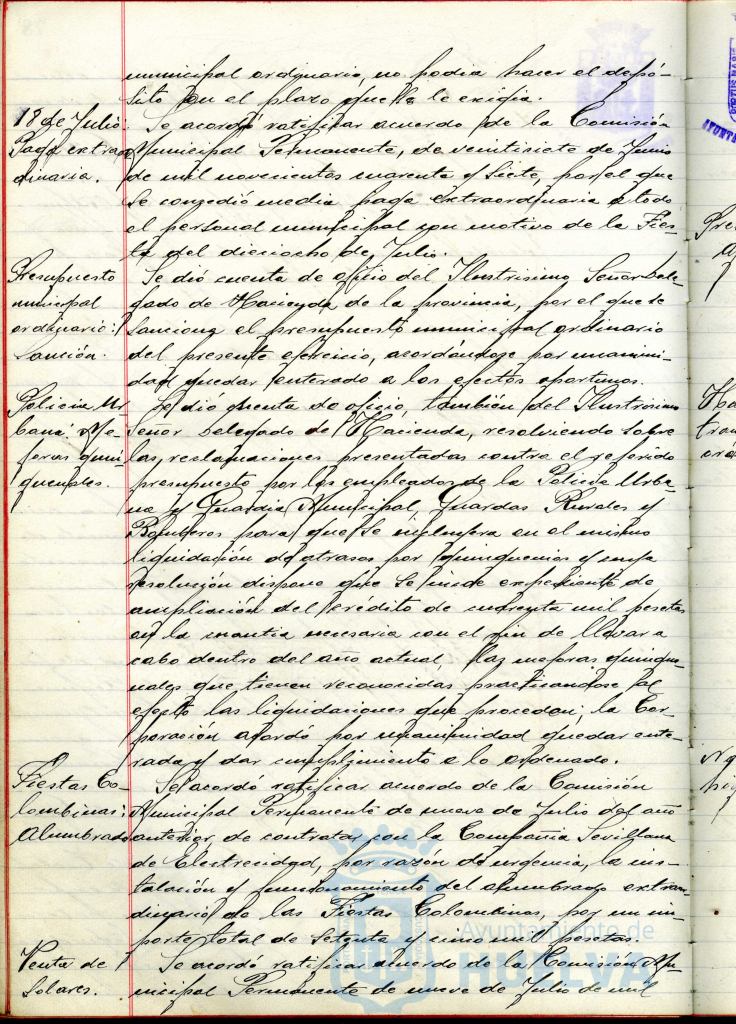 municipal ordinario, no podia hacer el depó-
sito en el plazo que se le exigia.
18 de Julio: Paga extraordinaria.
Se acordó ratificar acuerdo de la Comisión
Municipal Permanente, de veintisiete de Junio
de mil novecientos cuarenta y siete, por el que
se concedió media paga extraordinaria a todo
el personal municipal con motivo de la Fies-
ta del dieciocho de Julio.
Presupuesto
municipal
ordinario:
Sanción.
Se dió cuenta de oficio del Ilustrisimo Señor Dele-
gado de Hacienda de la provincia, por el que se
sanciona el presupuesto municipal ordinario
del presente ejercicio, acordándose por unanimi-
dad quedar enterado a los efectos oportunos.
Policia Ur-
bana: Me-
joras quin-
quenales.
Se dió cuenta de oficio, también del Ilustrisimo
Señor Delegado de Hacienda, resolviendo sobre
las reclamaciones presentadas contra el referido
presupuesto por los empleados de la Policia Urba-
na y Guardia Municipal, Guardas Rurales y
Bomberos para que se incluyera en el mismo
liquidación de atrasos por quinquenios y cuya
resolución dispone que se inicie expediente de
ampliación del crédito de cuarenta mil pesetas
en la cuantia necesaria con el fin de llevar a
cabo dentro del año actual, las mejoras quinque-
nales que tienen reconocidas practicandose al
efecto las liquidaciones que procedan; la Cor-
poración acordó por unanimidad quedar ente-
rada y dar cumplimiento a lo ordenado.
Fiestas Co-
lombinas:
Alumbrado
Se acordó ratificar acuerdo de la Comisión
Municipal Permanente de nueve de Julio del año
anterior, de contratar con la Compañia Sevillana
de Electricidad, por razón de urgencia, la ins-
talación y funcionamiento del alumbrado extraor-
dinario de las Fiestas Colombinas, por un im-
porte total de setenta y cinco mil pesetas.
Venta de
Solares.
Se acordó ratificar acuerdo de la Comisión Mu-
nicipal Permanente de nueve de Julio de mil
Ayuntamiento de
HUELVA